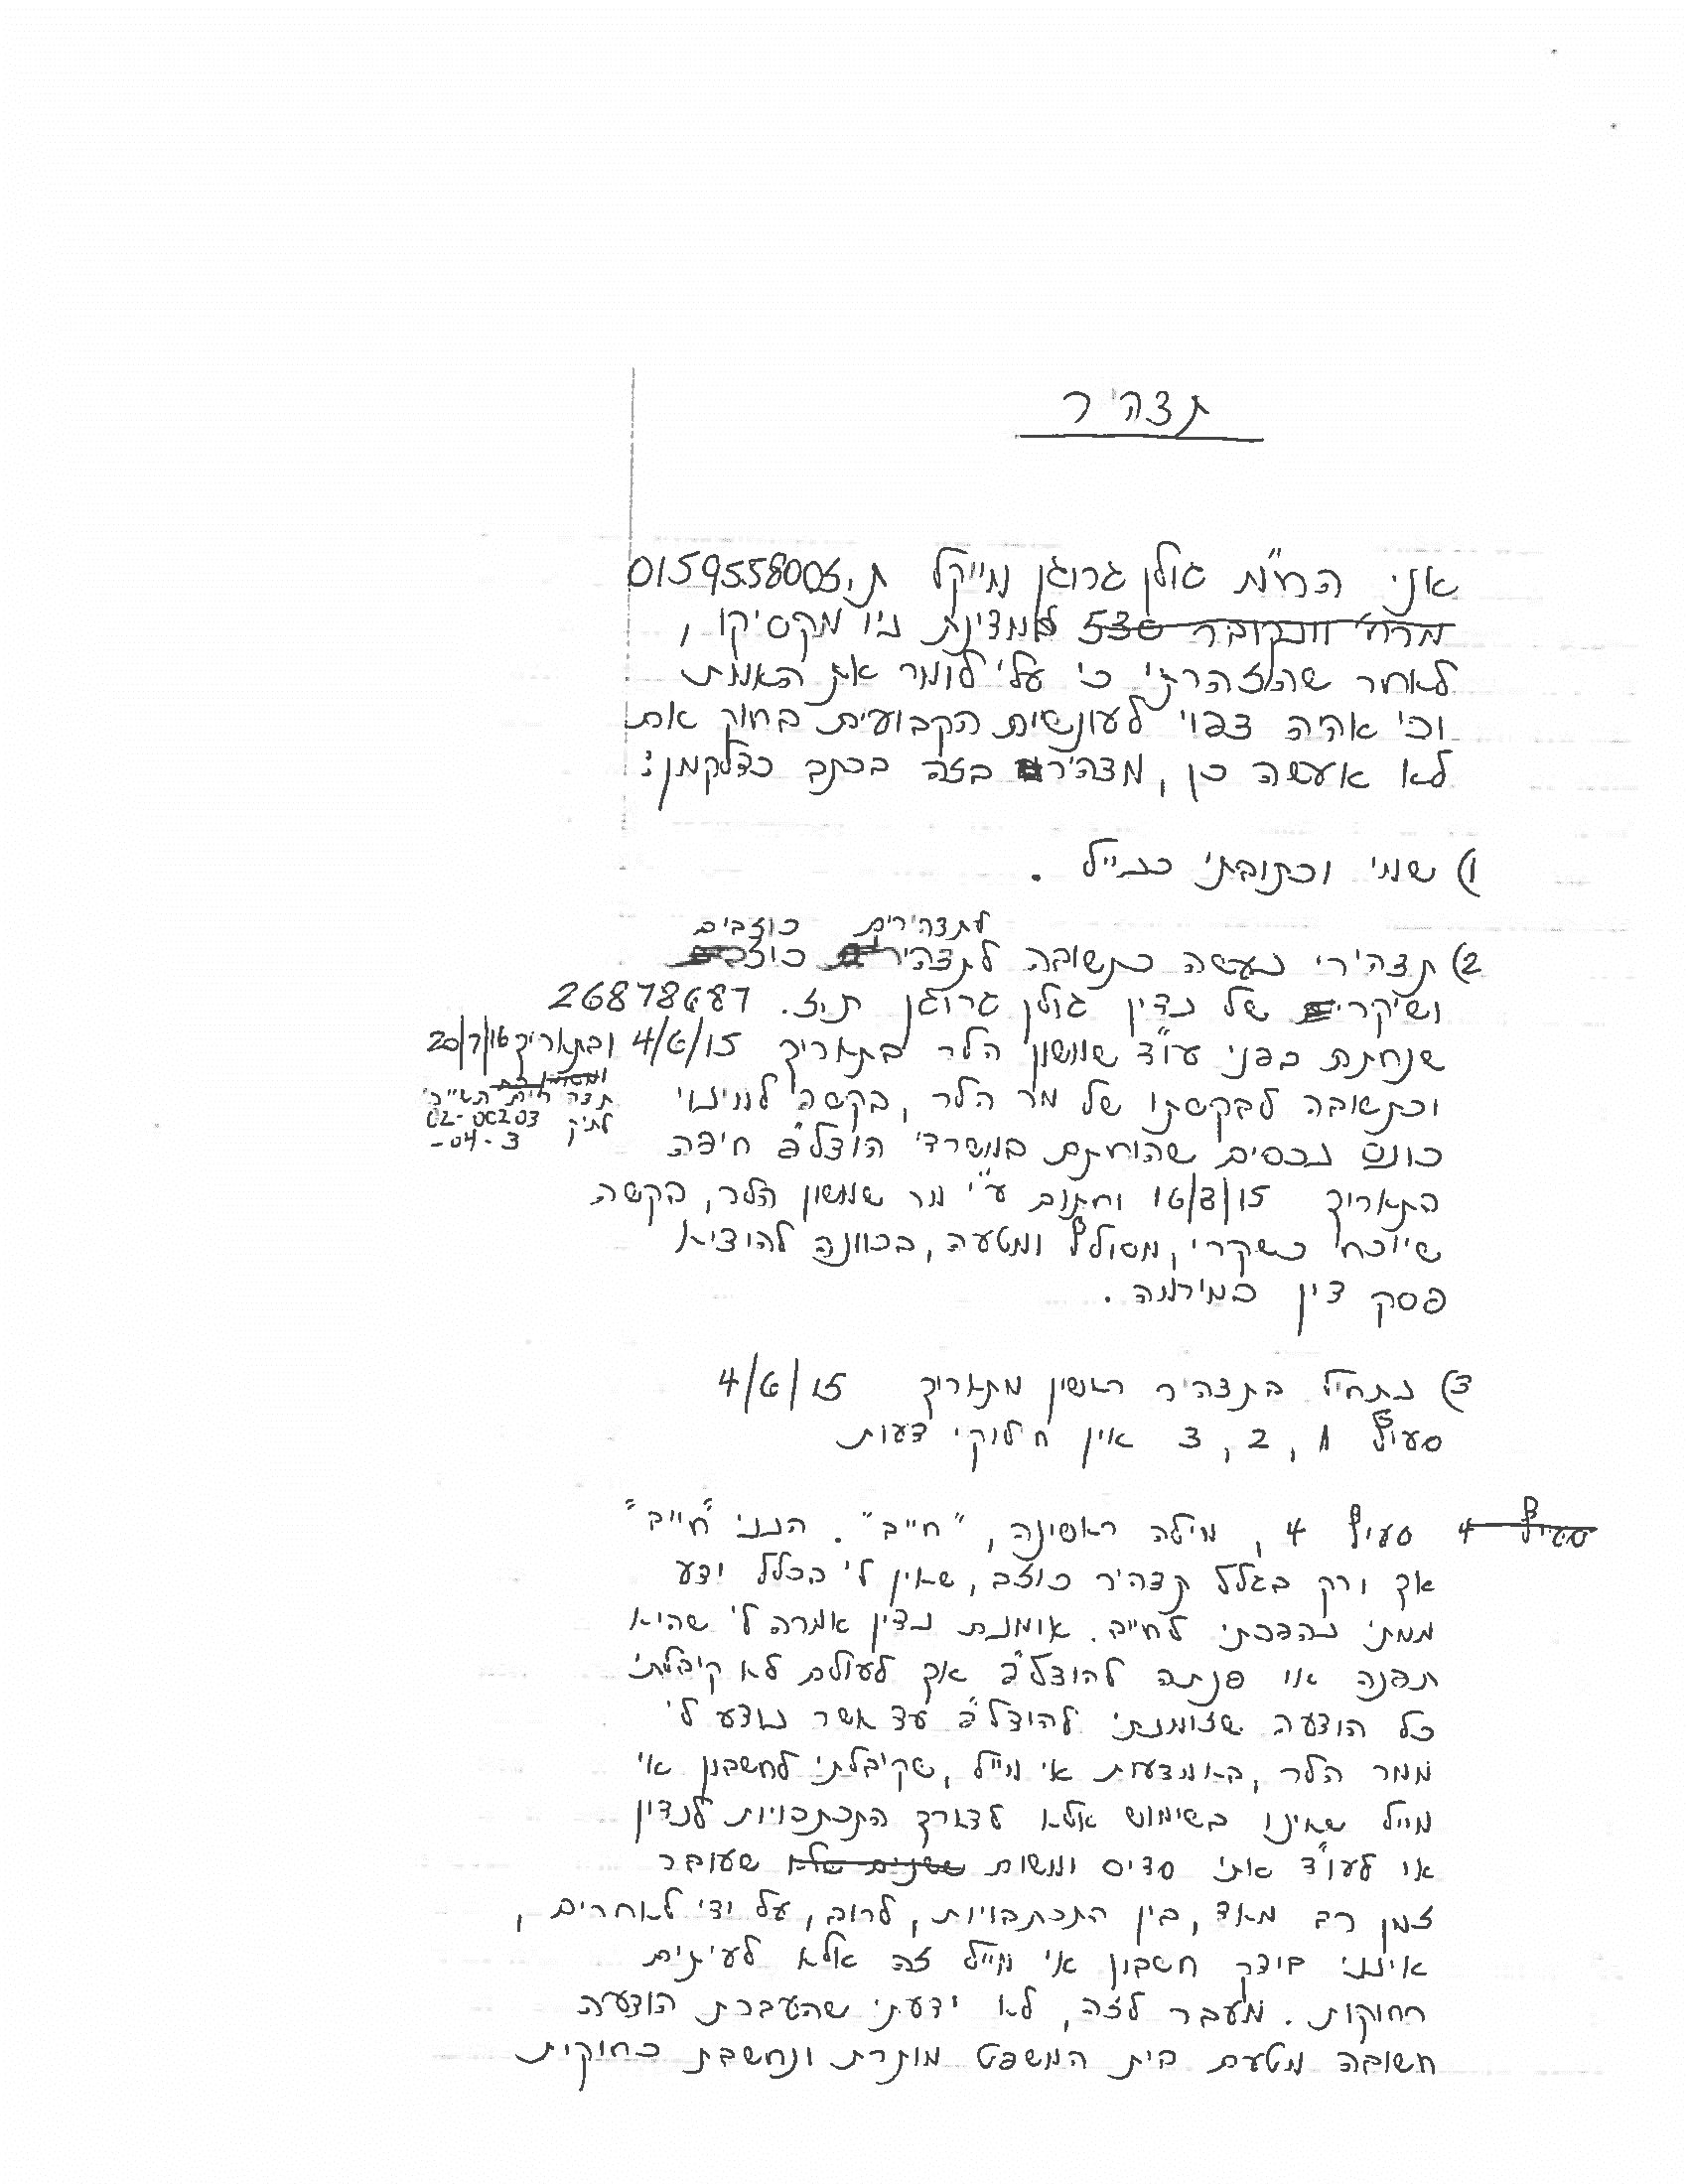 תצהיר
אני הח"מ גולן גרוגן מייקל ת.ז. 015955800
למדינת ניו מקסיקו,
לאחר שהוזהרתי כי עלי לומר את האמת
וכי אהיה צפוי לעונשים הקבועים בחוק אם
לא אעשה כן, מצהיר בזה בכתב כדלקמן:
1) שמי וכתובתי כנ"ל.
לתצהירים כוזבים
2) תצהירי נעשה כתשובה
ושיקרים של נדין גולן גרוגן ת.ז. 26878687
שנחתם בפני עו"ד שמשון הלר בתאריך 4/6/15 ובתאריך 20/7/16
לתיק 02-00203
-04-3
וכתשובה לבקשתו של מר הלר, בקשה למינוי
כונס נכסים שהוחתם במשרדי הוצל"פ חיפה
התאריך 16/8/15 וחתום ע"י מר שמשון הלר, בקשה
שיוכח כשקרי, מסולף ומטעה, בכוונה להוציא
פסק דין במירמה.
3) נתחיל בתצהיר ראשון מתאריך 4/6/15
סעיף 1, 2, 3 אין חילוקי דעות
סעיף 4, מילה ראשונה, "חייב". הנני "חייב"
אך ורק בגלל תצהיר כוזב, שאין לי בכלל ידע
ממתי נהפכתי לחייב. אומנם נדין אמרה לי שהיא
תפנה או פנתה להוצל"פ אך לעולם לא קיבלתי
כל הודעה שזומנתי להוצל"פ עד אשר נודע לי
ממר הלר, באמצעות אי מייל, שקיבלתי לחשבון אי
מייל שאינו בשימוש אלא לצורך התכתבויות לנדין
או לעו"ד אתי סדיס ומשום שעובר
זמן רב מאד, בין התכתבויות, לרוב, על ידי לאחרים,
אינני בודק חשבון אי מייל זה אלא לעיתים
רחוקות. מעבר לזה, לא ידעתי שהעברת הודעה
חשובה מטעם בית המשפט מותרת ונחשבת כחוקית